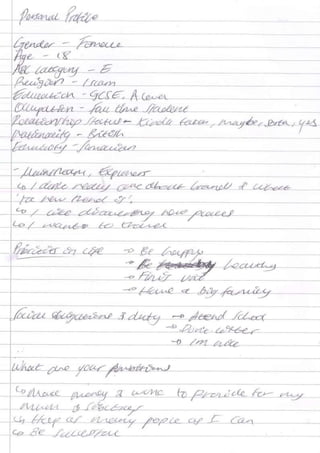 Personal Profile
Gender - Female
Age - 18
ABC category - E
Religion - Islam
Education - GCSE, A Level
Occupation - Full time Student
Relationship Status - Kinda taken, maybe, sorta, yes
Nationality - British
Ethnicity - Somalian
- Mainstream, Explorer
↳ I don't really care about brands & whats
'the new trend is'.
↳ I like discovering new places
↳ I want to travel
Priorities in life → Be happy
→ Be healthy
→ Find
→ Have a big family
Social obligations & duty → Attend School
→ Don't litter
→ I'm
What are your
↳ Make money & work to provide for my
mum & siblings
↳ Help as many people as I can
↳ Be successful